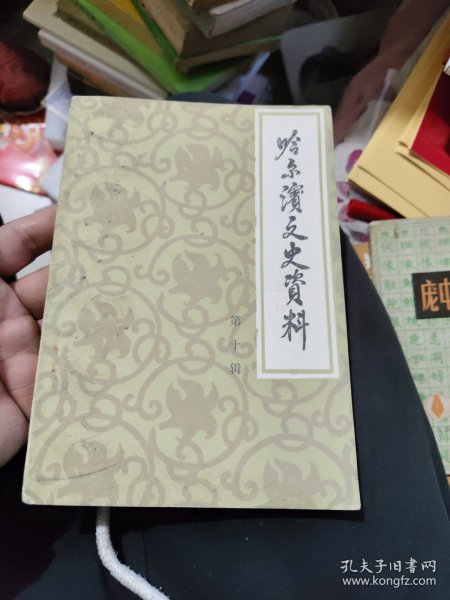 哈尔濱文史資料
第十辑
庞中
孔夫子旧书网
www.kongfz.com